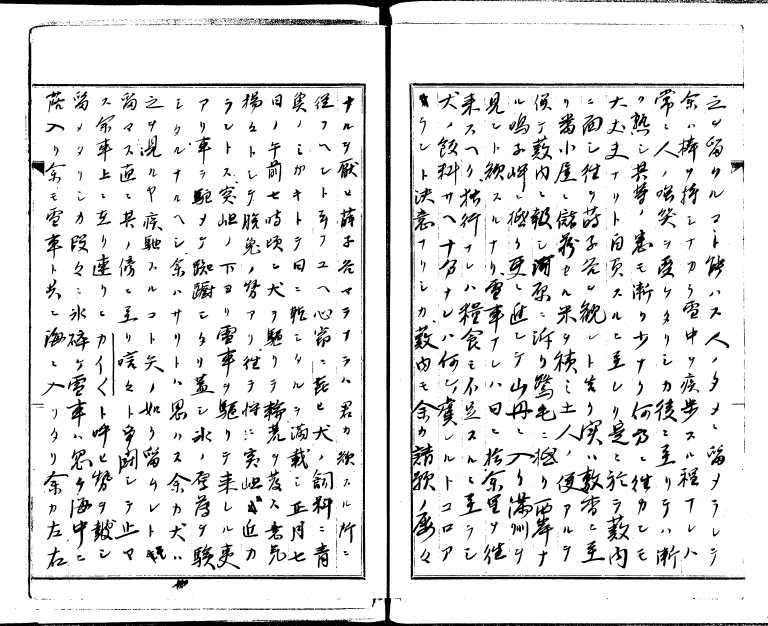 之ヲ留ムルコト能ハス人ノタメニ留メラレテ
余ハ棒ヲ持シナカラ雪中ヲ疾歩スル程ナレハ
常ニ人ノ嗤笑ヲ受ケタリシカ後ニ至リテハ漸
ク熟シ其等ノ患モ漸ク少ナク何方ニ往カンモ
大丈夫ナリト自負スルニ至レリ是ニ於テ薮内
ニ面シ往テ蒔子谷ヲ観ント告ク実ハ敷香ニ至
リ番小屋ニ儲蔵セル米ヲ積ミ土人ノ便アルテ
候テ薮内ニ報シ河原ニ泝リ鷲毛ニ極リ西岸ナ
ル鳴子岬ニ極リ更ニ進シテ山丹ニ入リ満州ヲ
見ント欲スルナリ雪車ナレハ日ニ拾余里ヲ往
来スヘク独行ナレハ糧食モ不足スルニ至ラシ
犬ノ飲料サヘ十分ナレハ何ソ虞レルトコロア
ラント決意ナリシカ薮内モ余カ請願ノ屡々
ナルヲ厭ヒ蒔子谷マテナラハ君カ欲スル所ニ
従フヘシト云フユヘ心窃ニ喜ヒ犬ノ飼料ニ青
魚ノミガキトテ日ニ乾シタルヲ満載シ正月七
日ノ午前七時頃ニ犬ヲ駆リテ輪荒ヲ發ス意気
揚々トシテ脱兎ノ勢アリ往テ将ニ実岨ニ近カ
ラントス実岨ノ下ヨリ雪車ヲ駆リテ来レル夷
アリ車ヲ駐メテ踟蹰シタリ蓋シ氷ノ厚薄ヲ験
シタルナルヘシ余ハサリトハ思ハス余カ犬ハ
之ヲ見ルヤ疾馳スルコト矢ノ如ク留ムレトモ
留マス直ニ其ノ傍ニ至リ喧々ト争闘シテ止マ
ス余車上ニ立リ連リニカイ〱ト呼ヒ勢ヲ鼓シ
留メタリシカ段々ニ氷碎ケ雪車ハ忽チ海中ニ
落入リ余モ雪車ト共ニ海ニ入リタリ余カ左右